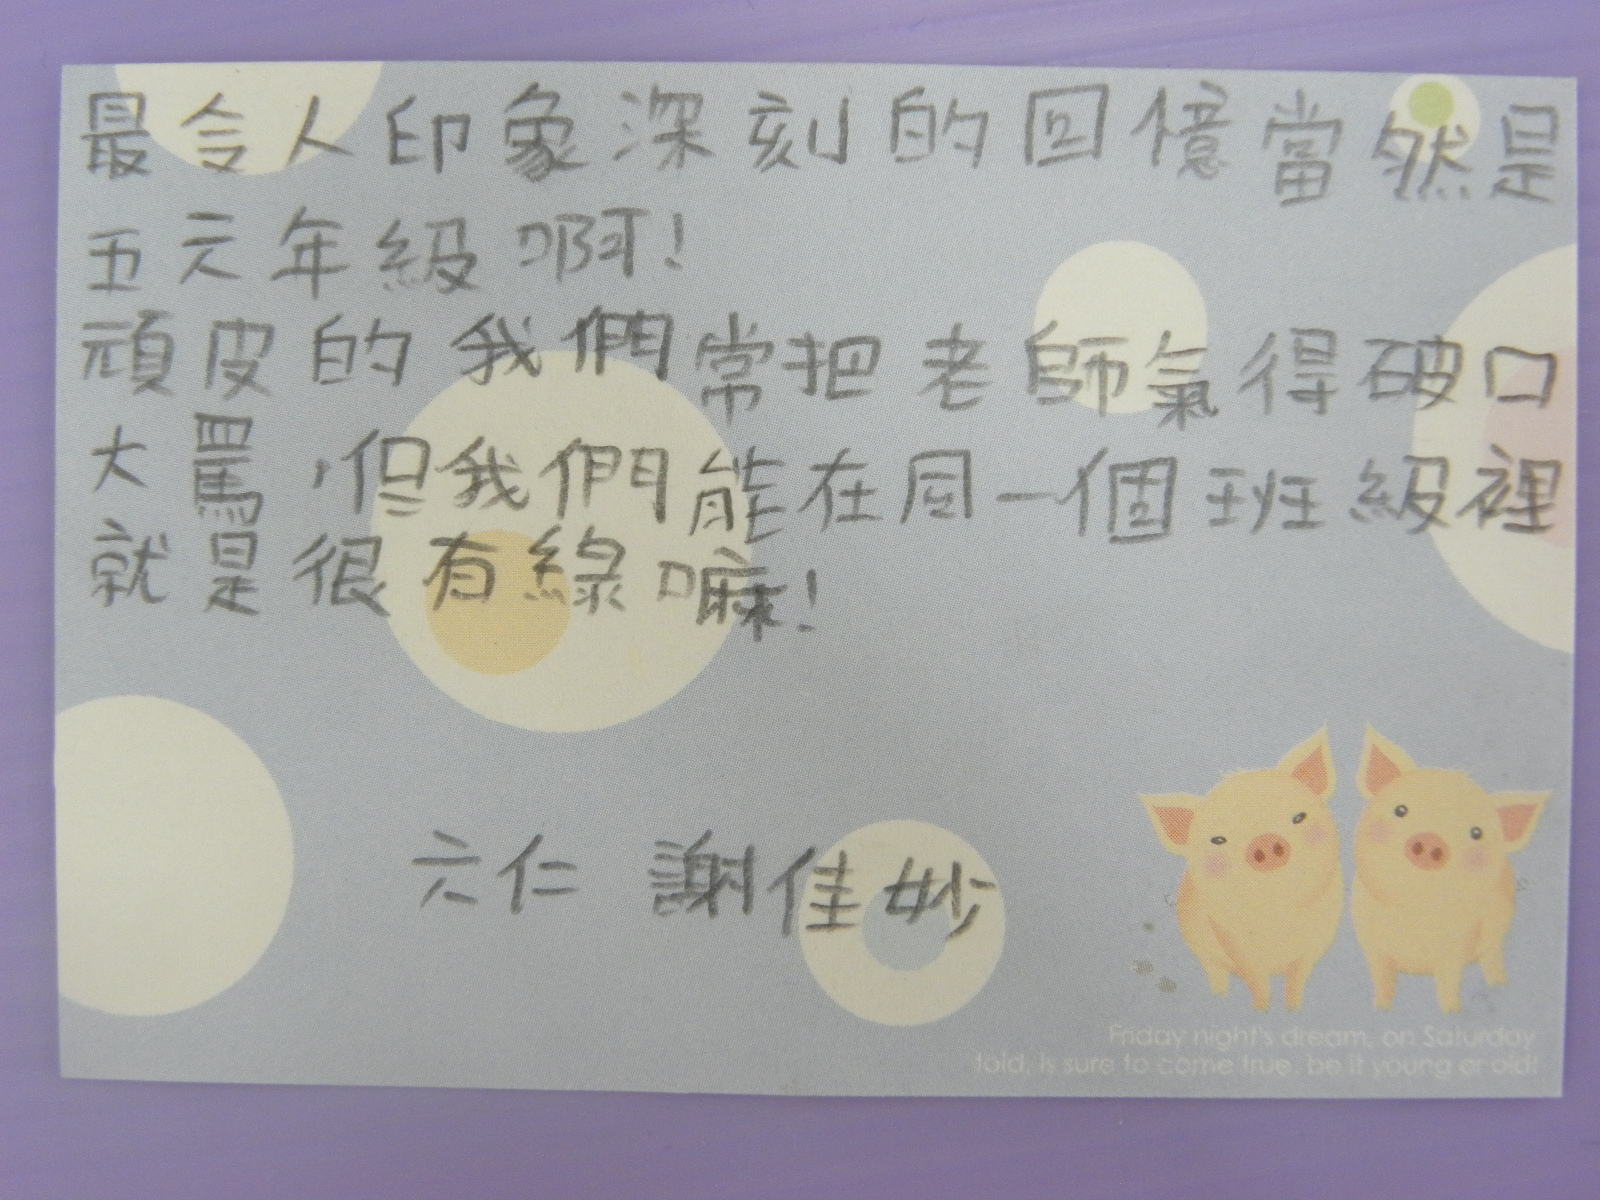 最令人印象深刻的回憶當然是
五元年級啊!
頑皮的我們常把老師氣得破口
大罵,但我們能在同一個班級裡
就是很有綠嘛!
六仁 謝佳妙
Friday night's dream, on Saturday
told, is sure to come true, be it young or old!